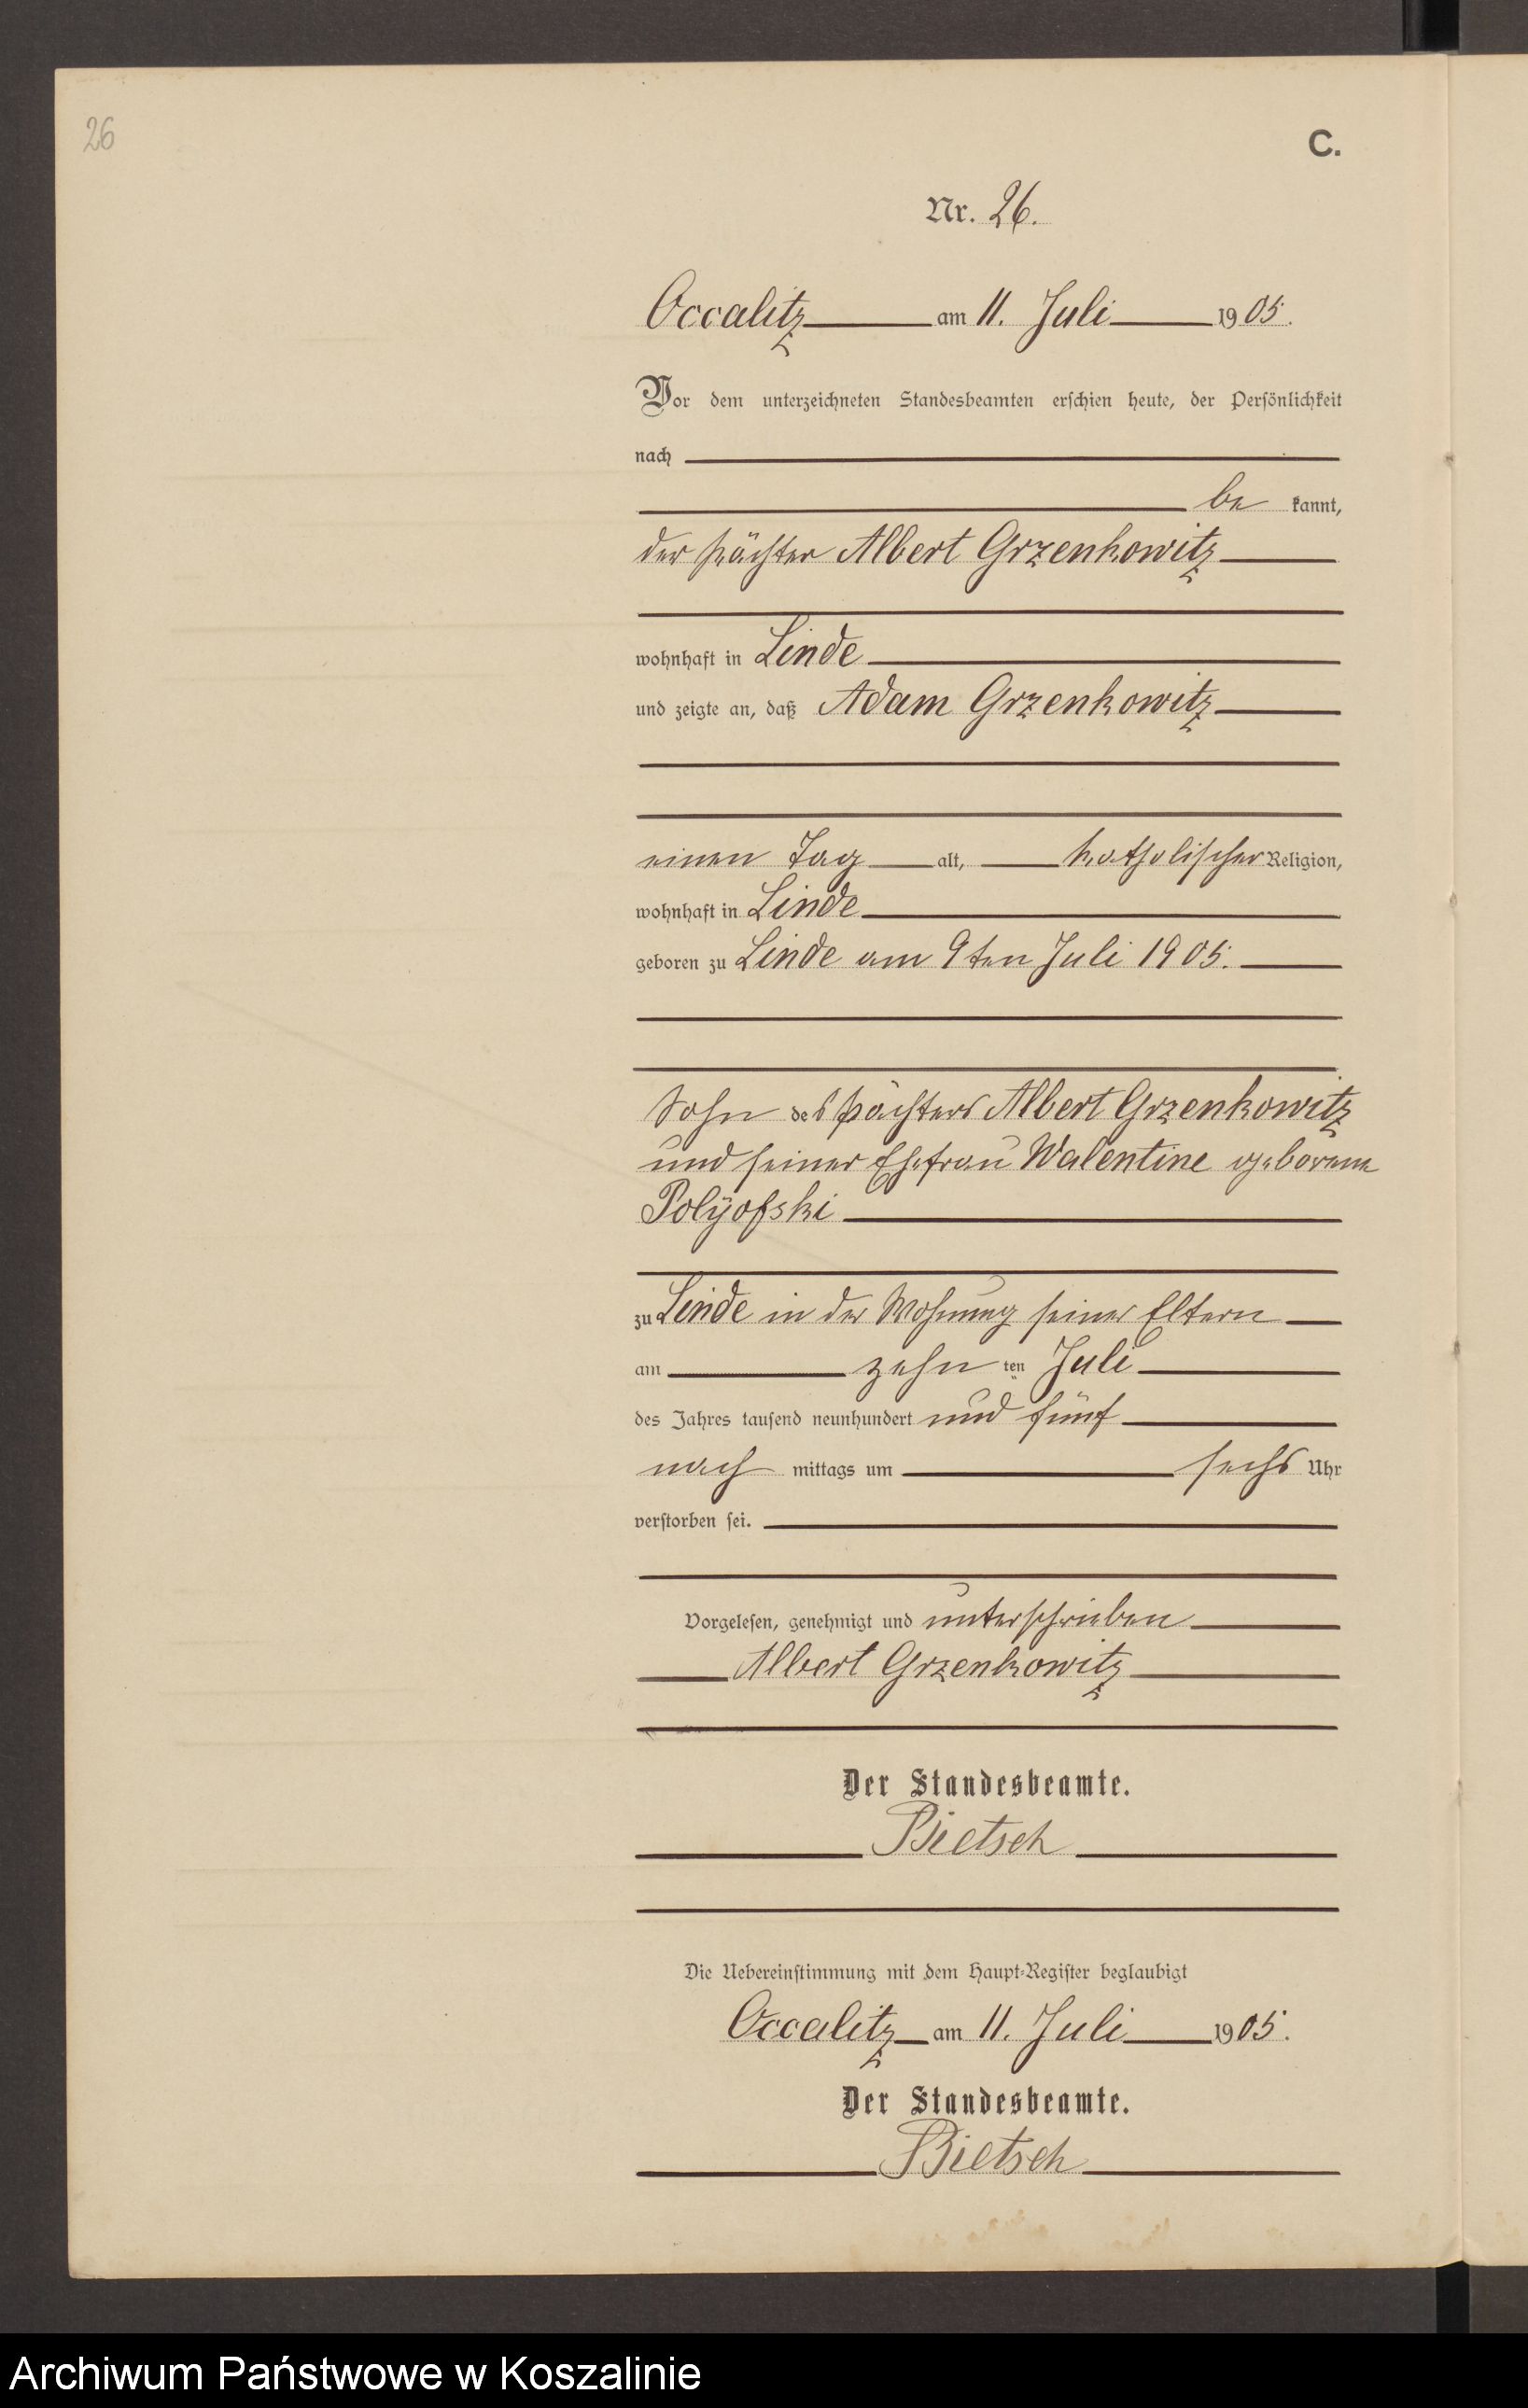 26
C.
Nr. 26.
Occalitz am 11. Juli 1905.
Vor dem unterzeichneten Standesbeamten erschien heute, der Persönlichkeit
nach
be kannt,
der Pächter Albert Grzenkowitz
wohnhaft in Linde
und zeigte an, daß Adam Grzenkowitz
einen Tag alt, katholischer Religion,
wohnhaft in Linde
geboren zu Linde am 9ten Juli 1905.
Sohn des Pächters Albert Grzenkowitz
und seiner Ehefrau Walentine geborene
Polÿofski
zu Linde in der Wohnung seiner Eltern
am zehn ten Juli
des Jahres tausend neunhundert und fünf
nach mittags um sechs Uhr
verstorben sei.
Vorgelesen, genehmigt und unterschrieben
Albert Grzenkowitz
Der Standesbeamte.
Bietsch
Die Uebereinstimmung mit dem Haupt-Register beglaubigt
Occalitz am 11. Juli 1905.
Der Standesbeamte.
Bietsch
Archiwum Państwowe w Koszalinie